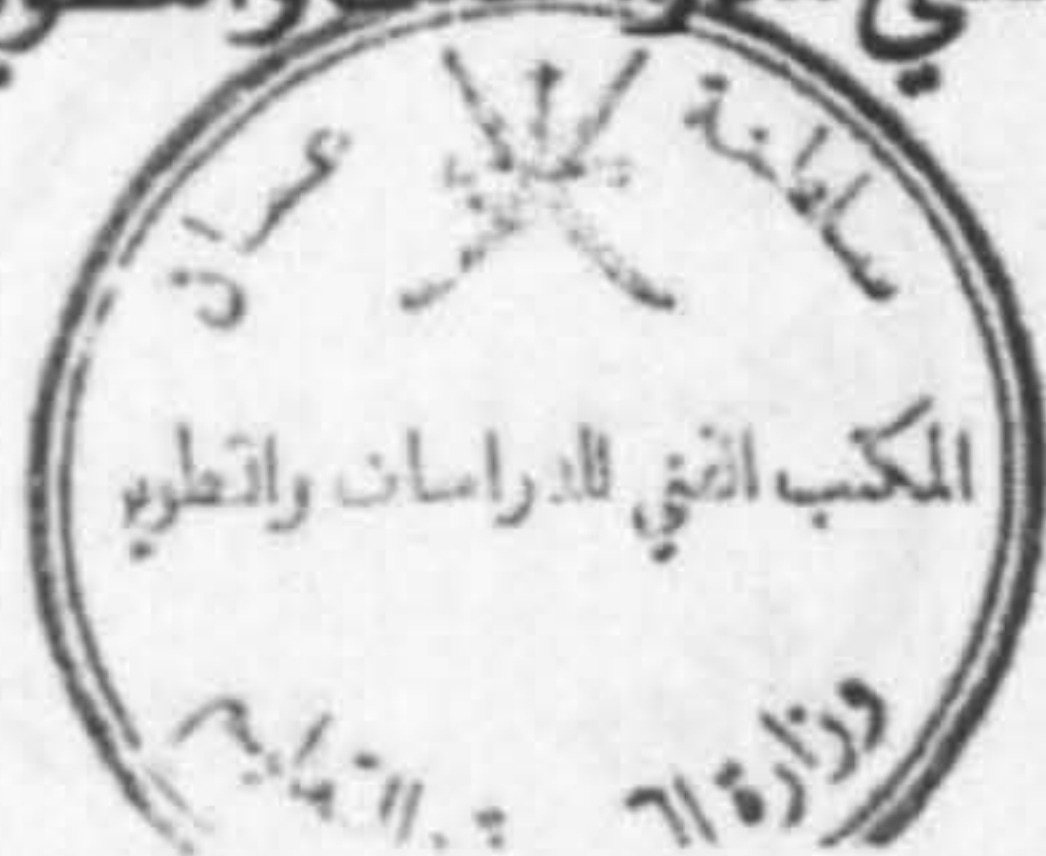 سلطنة عمان
المكتب الفني للدراسات والتطوير
وزارة والتعليم